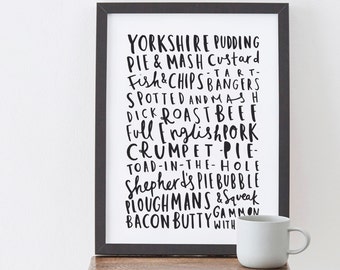 YORKSHIRE PUDDING
PIE & MASH Custard
Fish & CHIPS - TART -
BANGERS
SPOTTED AND MASH
DICK ROAST BEEF
Full English PORK
CRUMPET - PIE -
TOAD-IN-THE-HOLE
Shepherd's PIE BUBBLE
PLOUGHMANS & Squeak
BACON BUTTY GAMMON
WITH